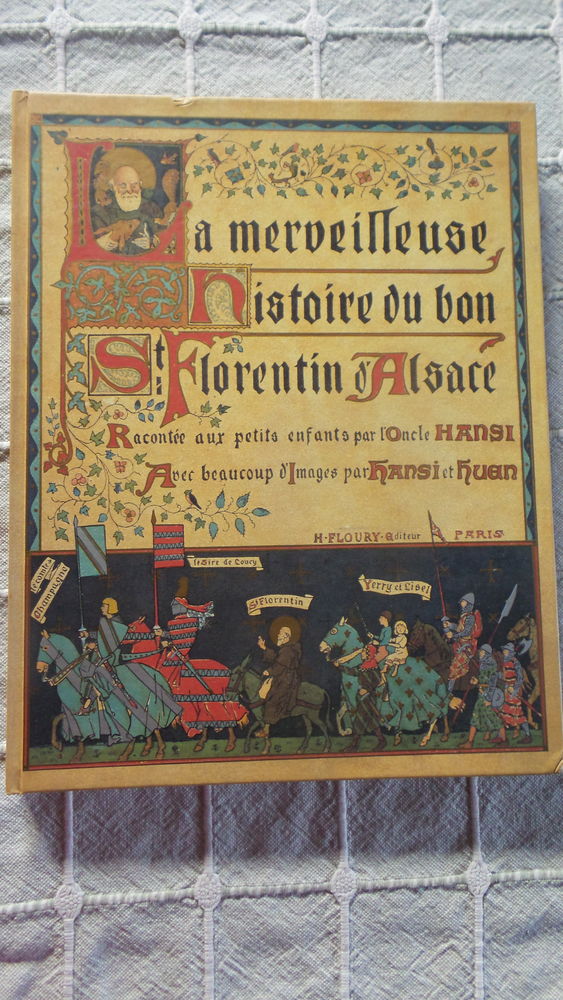 La merveilleuse
histoire du bon
St. Florentin d'Alsace
Racontée aux petits enfants par l'Oncle HANSI
Avec beaucoup d'Images par Hansi et Huen
H. FLOURY. Editeur PARIS
le comte de
Champagne
le Sire de Coucy
St Florentin
Yerry et Lisel